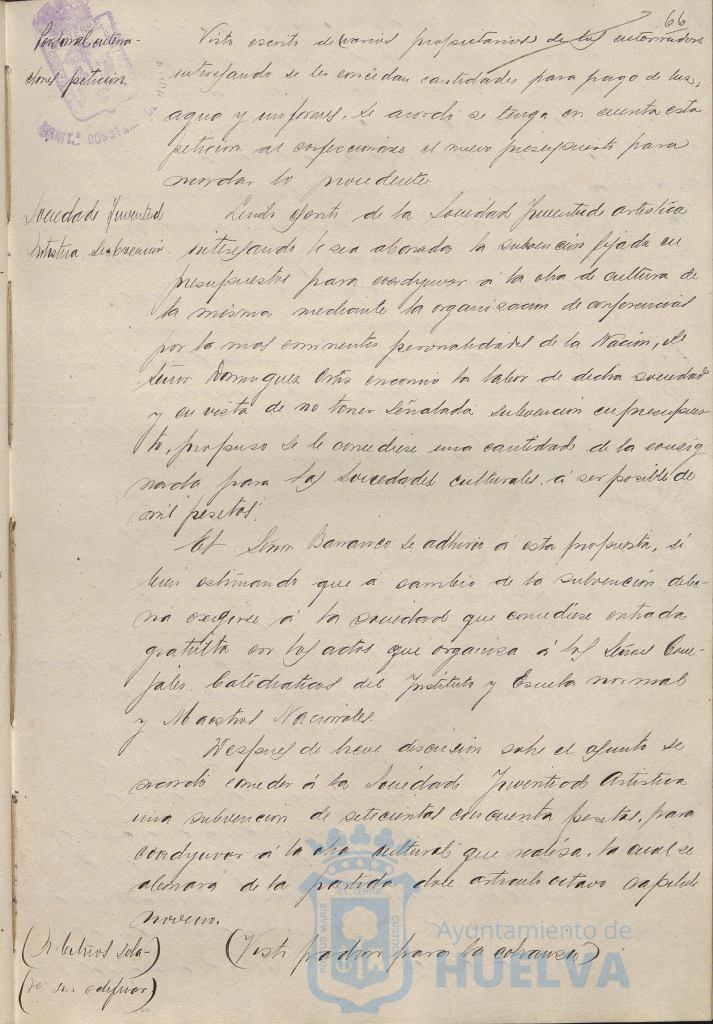 66
Visto escrito de varios propietarios de los
interesando se les concedan cantidades para pago de luz,
agua y uniformes, se acordó se tenga en cuenta esta
petición al confeccionarse el nuevo presupuesto para
acordar lo procedente.
petición
Sociedad Juventud
Artística, Subvención.
Leido escrito de la Sociedad Juventud artistica
interesando le sea abonada la subvención fijada en
presupuestos para coadyuvar á la obra de cultura de
la misma mediante la organización de conferencias
por la mas eminentes personalidades de la Nación, el
Señor Dominguez Ortiz encomió la labor de dicha sociedad
y en vista de no tener señalada subvención en presupues-
to, propuso se le concediese una cantidad de la consig
nada para las Sociedades culturales á ser posible de
mil pesetas.
El Señor Barranco se adhirió á esta propuesta, si
bien estimando que á cambio de la subvención debe-
ria exigirse á la sociedad que concediese entrada
gratuita en los actos que organiza á los Señores Conce-
jales, Catedraticos del Instituto y Escuela normal
y Maestros Nacionales.
Despues de breve discusión sobre el asunto se
acordó conceder á la Sociedad Juventud Artistica
una subvención de setecientas cincuenta pesetas, para
coadyuvar á la obra cultural que realiza, la cual se
abonará de la partida doce articulo octavo capitulo
noveno.
(Arbitrios sola-)
(res sin edificar)
(Visto padron para la cobranza)
PORTUS MARIS
ET TERRÆ CUSTODIA
Ayuntamiento de
HUELVA